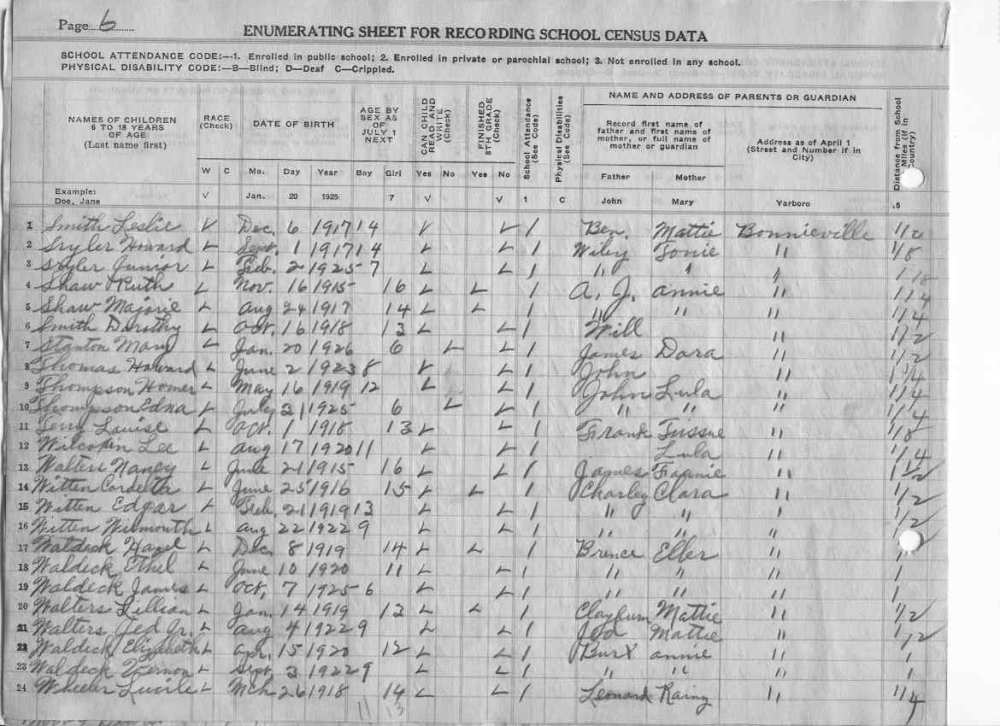 Page 6
ENUMERATING SHEET FOR RECORDING SCHOOL CENSUS DATA
SCHOOL ATTENDANCE CODE:—1. Enrolled in public school; 2. Enrolled in private or parochial school; 3. Not enrolled in any school.
PHYSICAL DISABILITY CODE:—B—Blind; D—Deaf C—Crippled.
NAMES OF CHILDREN 6 TO 18 YEARS OF AGE (Last name first) RACE (Check) DATE OF BIRTH AGE BY SEX AS OF JULY 1 NEXT CAN CHILD READ AND WRITE (Check) FINISHED 8TH GRADE (Check) School Attendance (See Code) Physical Disabilities (See Code) NAME AND ADDRESS OF PARENTS OR GUARDIAN Distance from School Miles (if in Country)
Record first name of father and first name of mother, or full name of mother or guardian Address as of April 1 (Street and Number if in City)
W C Mo. Day Year Boy Girl Yes No Yes No Father Mother
Example: Doe, Jane √ Jan. 20 1925 7 √ √ 1 C John Mary Yarboro .5
1 Smith Leslie √ Dec. 6 1917 14 √ √ 1 Ben. Mattie Bonnieville 1/2
2 Howard √ Sept. 1 1917 14 √ √ 1 Wiley " 1/8
3 Junior √ Feb. 2 1925 7 √ √ 1 " " " 1/8
4 Shaw Ruth √ Nov. 16 1915 16 √ √ 1 A. J. Annie " 1/4
5 Shaw Majorie √ Aug 24 1917 14 √ √ 1 " " " 1/4
6 Smith Dorothy √ Oct. 16 1918 13 √ √ 1 Will " 1/2
7 Stanton Mary √ Jan. 20 1926 6 √ √ 1 James Dora " 1/2
8 Thomas Howard √ June 2 1923 8 √ √ 1 John " 1/4
9 Thompson Homer √ May 16 1919 12 √ √ 1 John Lula " 1/4
10 Thompson Edna √ July 21 1925 6 √ √ 1 " " " 1/4
11 Terry Louise √ Oct. 1 1918 13 √ √ 1 Frank " 1/8
12 Lee √ Aug 17 1920 11 √ √ 1 Lula " 1/4
13 Walters Nancy √ June 21 1915 16 √ √ 1 James Fannie " 1 1/2
14 Witten √ June 25 1916 15 √ √ 1 Charley Clara " 1/2
15 Witten Edgar √ Feb. 21 1919 13 √ √ 1 " " " 1/2
16 Witten √ Aug 22 1922 9 √ √ 1 " " "
17 Waldeck Hazel √ Dec. 8 1919 14 √ √ 1 Eller " 1
18 Waldeck Ethel √ June 10 1920 11 √ √ 1 " " " 1
19 Waldeck James √ Oct. 7 1925 6 √ √ 1 " " " 1
20 Walters Lillian √ Jan. 14 1919 12 √ √ 1 Mattie " 1/2
21 Walters Jed Jr. √ Aug 4 1922 9 √ √ 1 Jed Mattie " 1/2
22 Waldeck Elizabeth √ Apr. 15 1920 12 √ √ 1 Burt Annie " 1
23 Waldeck Vernon √ Sept. 3 1922 9 √ √ 1 " " " 1
24 Wheeler Lucile √ Mch 26 1918 14 √ √ 1 Leonard " 1/4
11 13